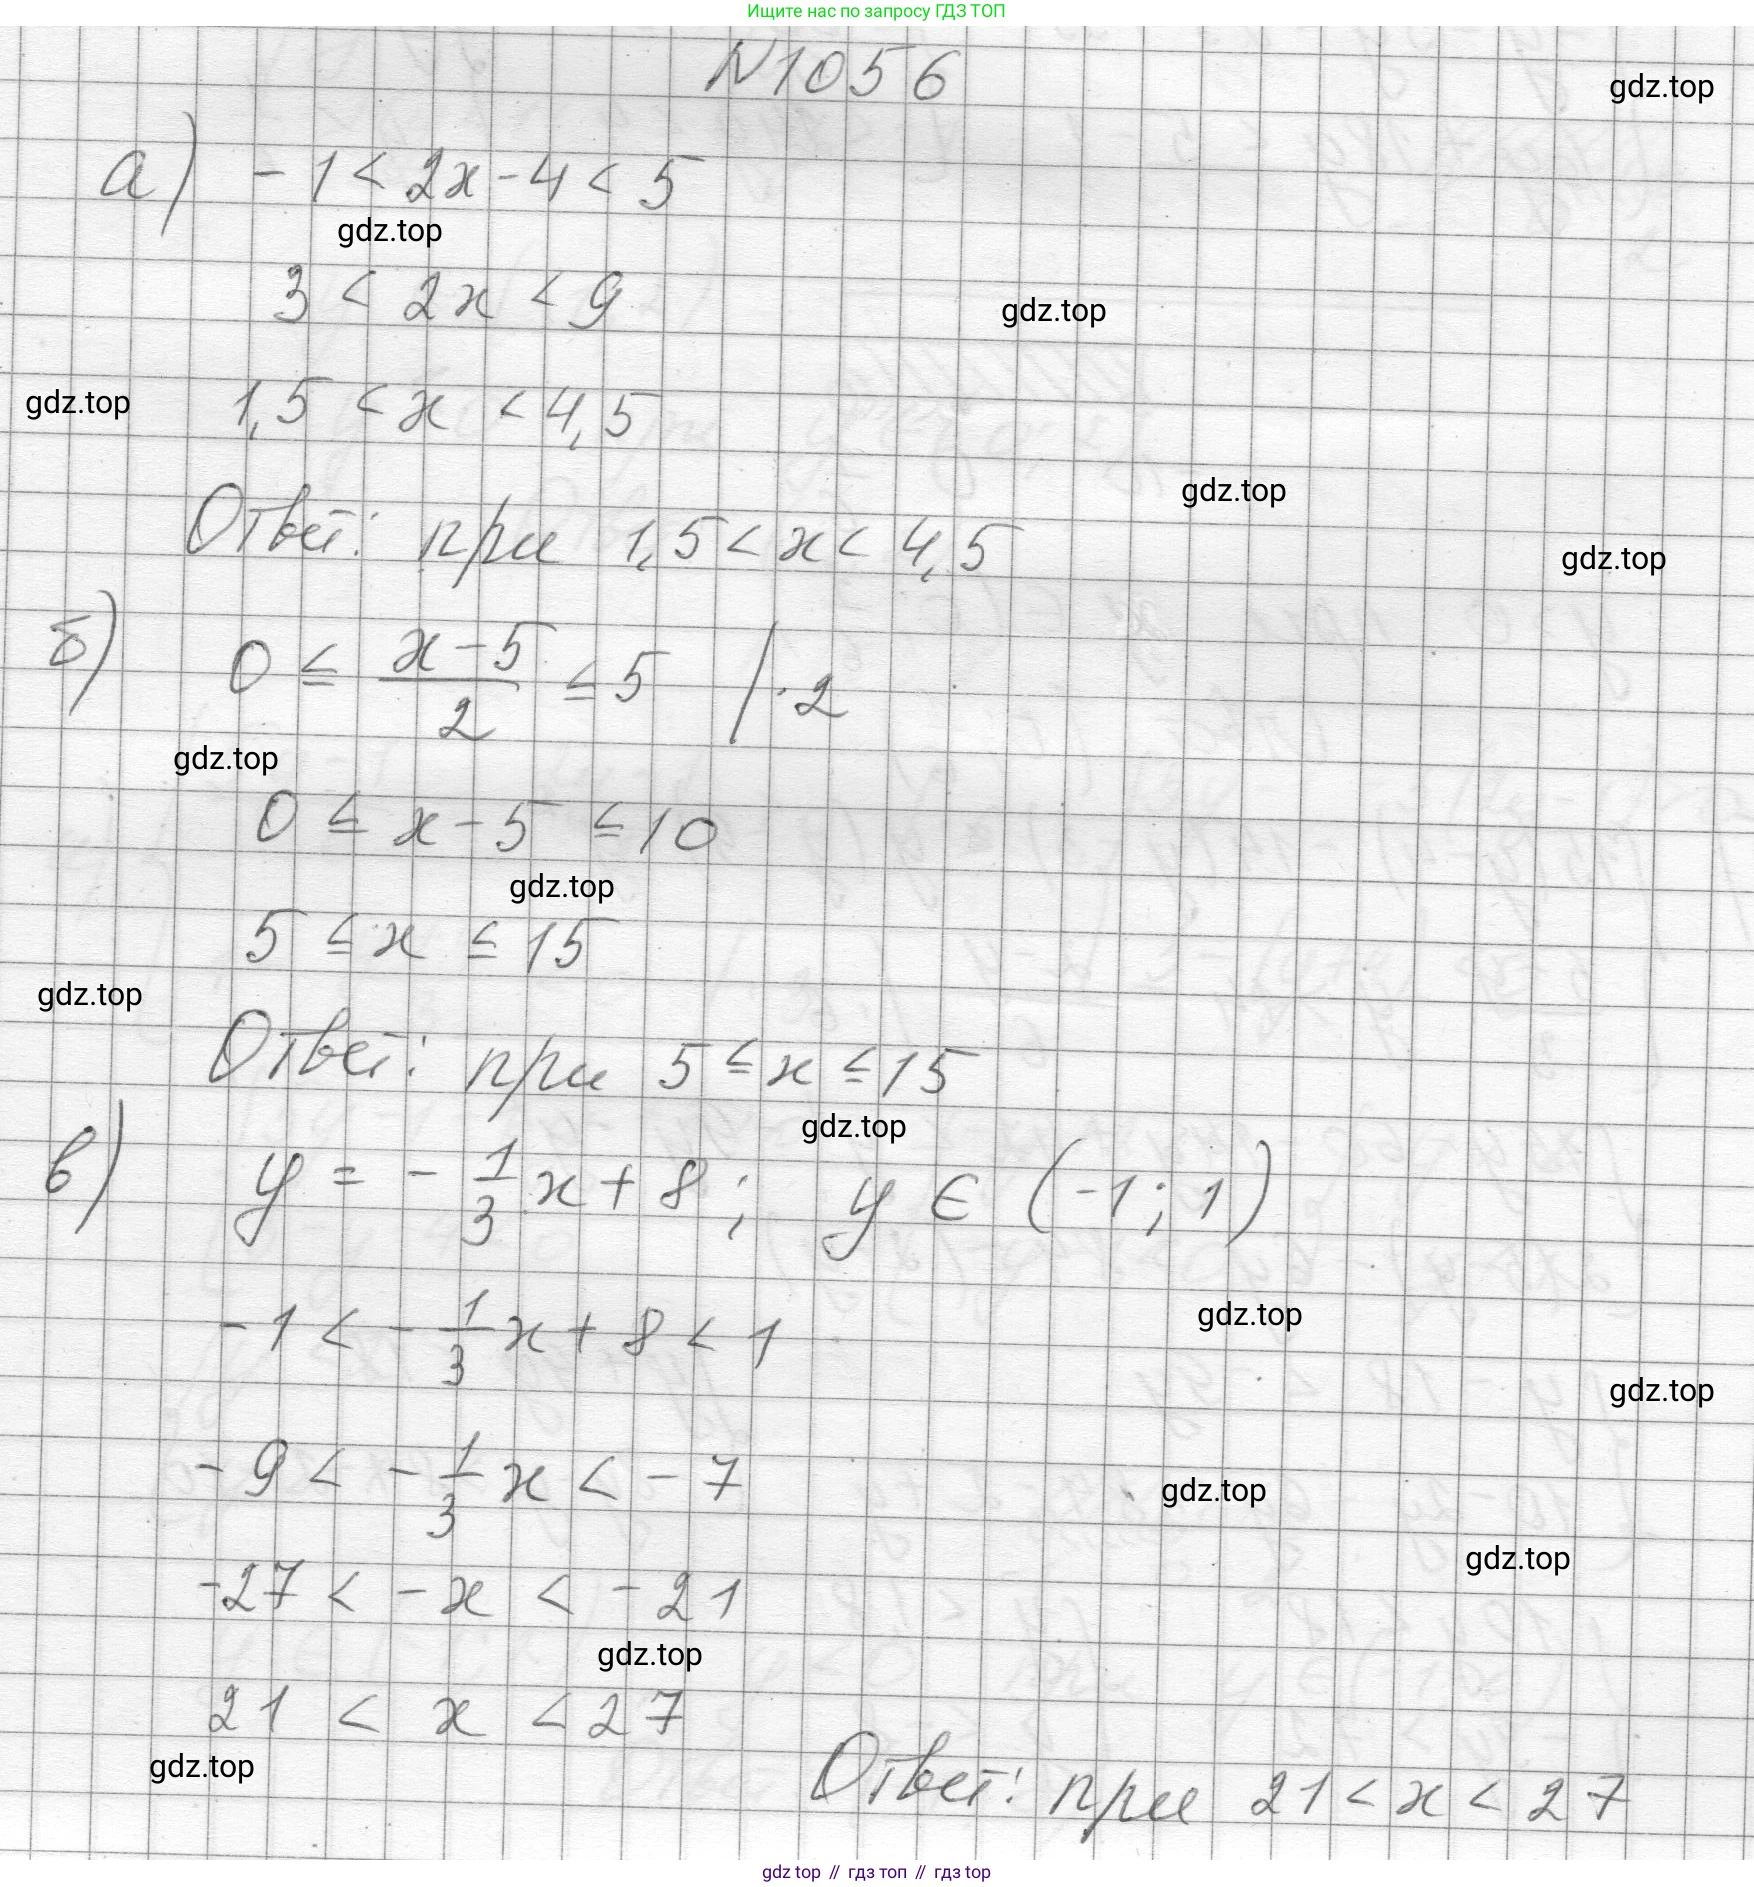 Ищите нас по запросу ГДЗ ТОП
N1056
gdz.top
а) -1 < 2x - 4 < 5
gdz.top
3 < 2x < 9
gdz.top
gdz.top
1,5 < x < 4,5
gdz.top
Ответ: при 1,5 < x < 4,5
gdz.top
б) 0 ≤ (x-5)/2 ≤ 5 | · 2
gdz.top
0 ≤ x - 5 ≤ 10
gdz.top
5 ≤ x ≤ 15
gdz.top
Ответ: при 5 ≤ x ≤ 15
gdz.top
в) y = - 1/3 x + 8; y ∈ (-1; 1)
gdz.top
-1 < - 1/3 x + 8 < 1
gdz.top
-9 < - 1/3 x < -7
gdz.top
gdz.top
-27 < -x < -21
gdz.top
21 < x < 27
gdz.top
Ответ: при 21 < x < 27
gdz.top // гдз топ // гдз top